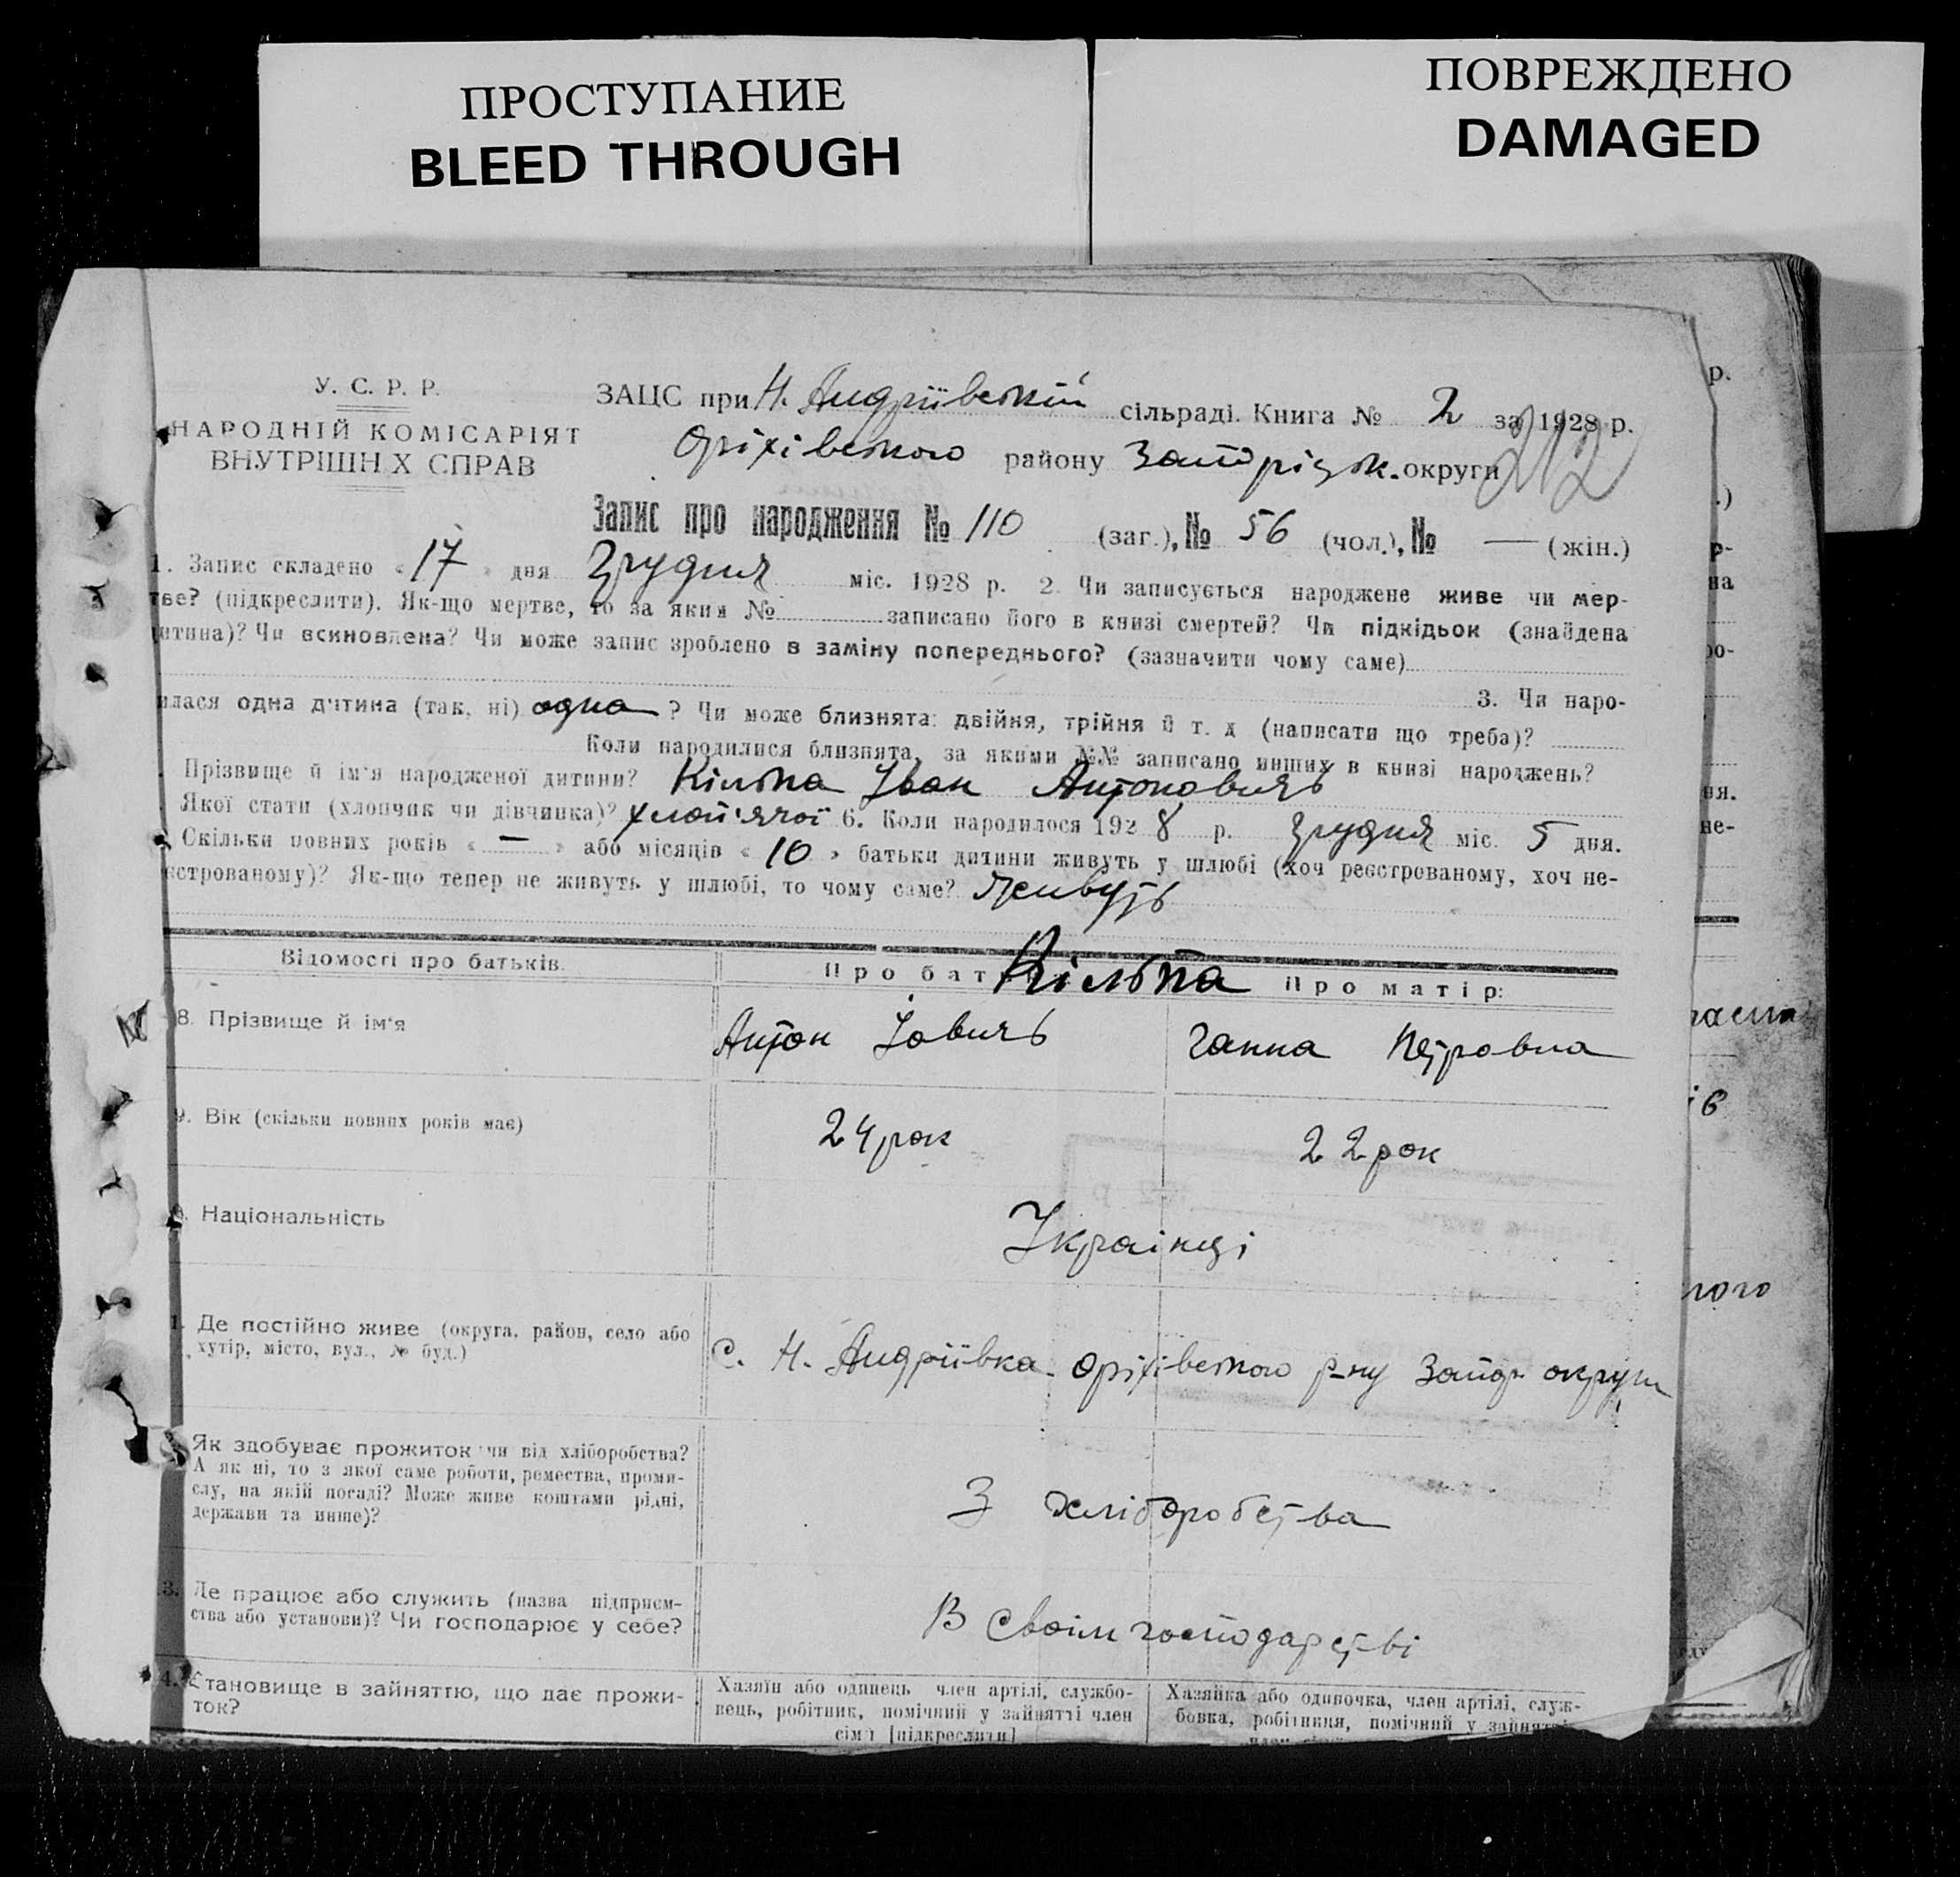 ПРОСТУПАНИЕ
BLEED THROUGH
ПОВРЕЖДЕНО
DAMAGED
У. С. Р. Р.
НАРОДНІЙ КОМІСАРІЯТ
ВНУТРІШН Х СПРАВ
ЗАЦС при Н. Андріївській сільраді. Книга № 2 за 1928 р.
Оріхівського району Запоріцьк. округи
212
Запис про народження № 110 (заг.), № 56 (чол.), № — (жін.)
1. Запис складено « 17 » дня Грудня міс. 1928 р. 2. Чи записується народжене живе чи мер-
тве? (підкреслити). Як-що мертве, то за яким № записано його в книзі смертей? Чи підкідьок (знайдена
итина)? Чи всиновлена? Чи може запис зроблено в заміну попереднього? (зазначити чому саме)
3. Чи наро-
илася одна дитина (так, ні) одна ? Чи може близнята: двійня, трійня й т. д (написати що треба)?
Коли народилися близнята, за якими №№ записано инших в книзі народжень?
Прізвище й ім'я народженої дитини? Кільпа Іван Антонович
Якої стати (хлопчик чи дівчинка)? хлоп'ячої 6. Коли народилося 192 8 р. Грудня міс. 5 дня.
Скільки повних років « — » або місяців « 10 » батьки дитини живуть у шлюбі (хоч реєстрованому, хоч не-
єстрованому)? Як-що тепер не живуть у шлюбі, то чому саме? живуть
Відомості про батьків. Про бат Кільпа Про матір:
8. Прізвище й ім'я Антон Йович Ганна Петровна
9. Вік (скільки повних років має) 24 рок 22 рок
Національність Українці
Де постійно живе (округа, район, село або
хутір, місто, вул., № буд.)
С. Н. Андріївка Оріхівського р-ну Запор округи
Як здобуває прожиток чи від хліборобства?
А як ні, то з якої саме роботи, ремества, проми-
слу, на якій посаді? Може живе коштами рідні,
держави та инше)?
З хліборобства
3. Де працює або служить (назва підприєм-
ства або установи)? Чи господарює у себе?
В своїм господарстві
4. Становище в зайняттю, що дає прожи-
ток?
Хазяїн або одинець член артілі, службо-
вець, робітник, помічний у зайнятті член
сім'ї [підкреслити]
Хазяйка або одиночка, член артілі, служ-
бовка, робітниця, помічний у зайнятті